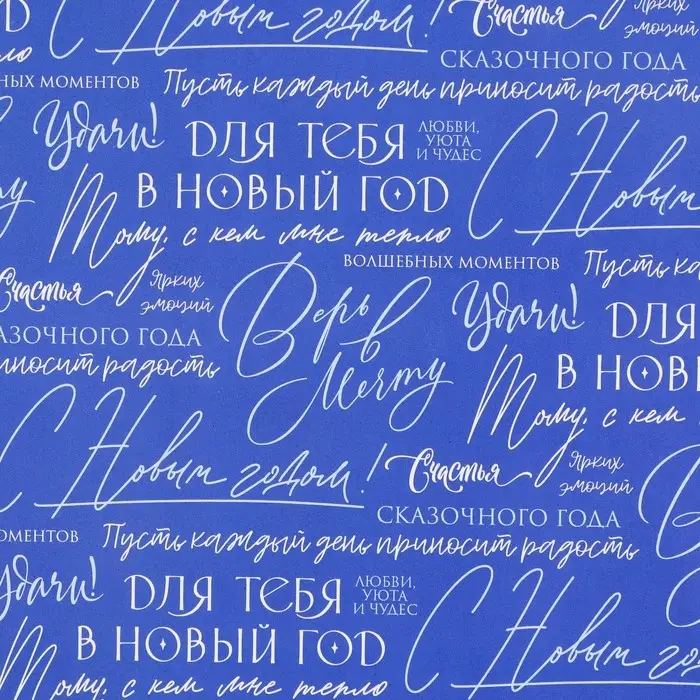 С Новым годом!
Счастья
Ярких
эмоций
тепло
СКАЗОЧНОГО ГОДА
МОМЕНТОВ
Пусть каждый день приносит радость
Удачи!
ДЛЯ ТЕБЯ
ЛЮБВИ,
УЮТА
И ЧУДЕС
В НОВЫЙ ГОД
С Новым
Тому, с кем мне тепло
ВОЛШЕБНЫХ МОМЕНТОВ
Пусть ка
Счастья
Ярких
эмоций
Верь
в
Мечту
Удачи!
ДЛЯ
КАЗОЧНОГО ГОДА
приносит радость
В НОВ
Тому, с кем
С Новым годом!
Счастья
Ярких
эмоций
СКАЗОЧНОГО ГОДА
МОМЕНТОВ
Пусть каждый день приносит радость
Удачи!
ДЛЯ ТЕБЯ
ЛЮБВИ,
УЮТА
И ЧУДЕС
В НОВЫЙ ГОД
С Новым
Тому, с кем мне тепло